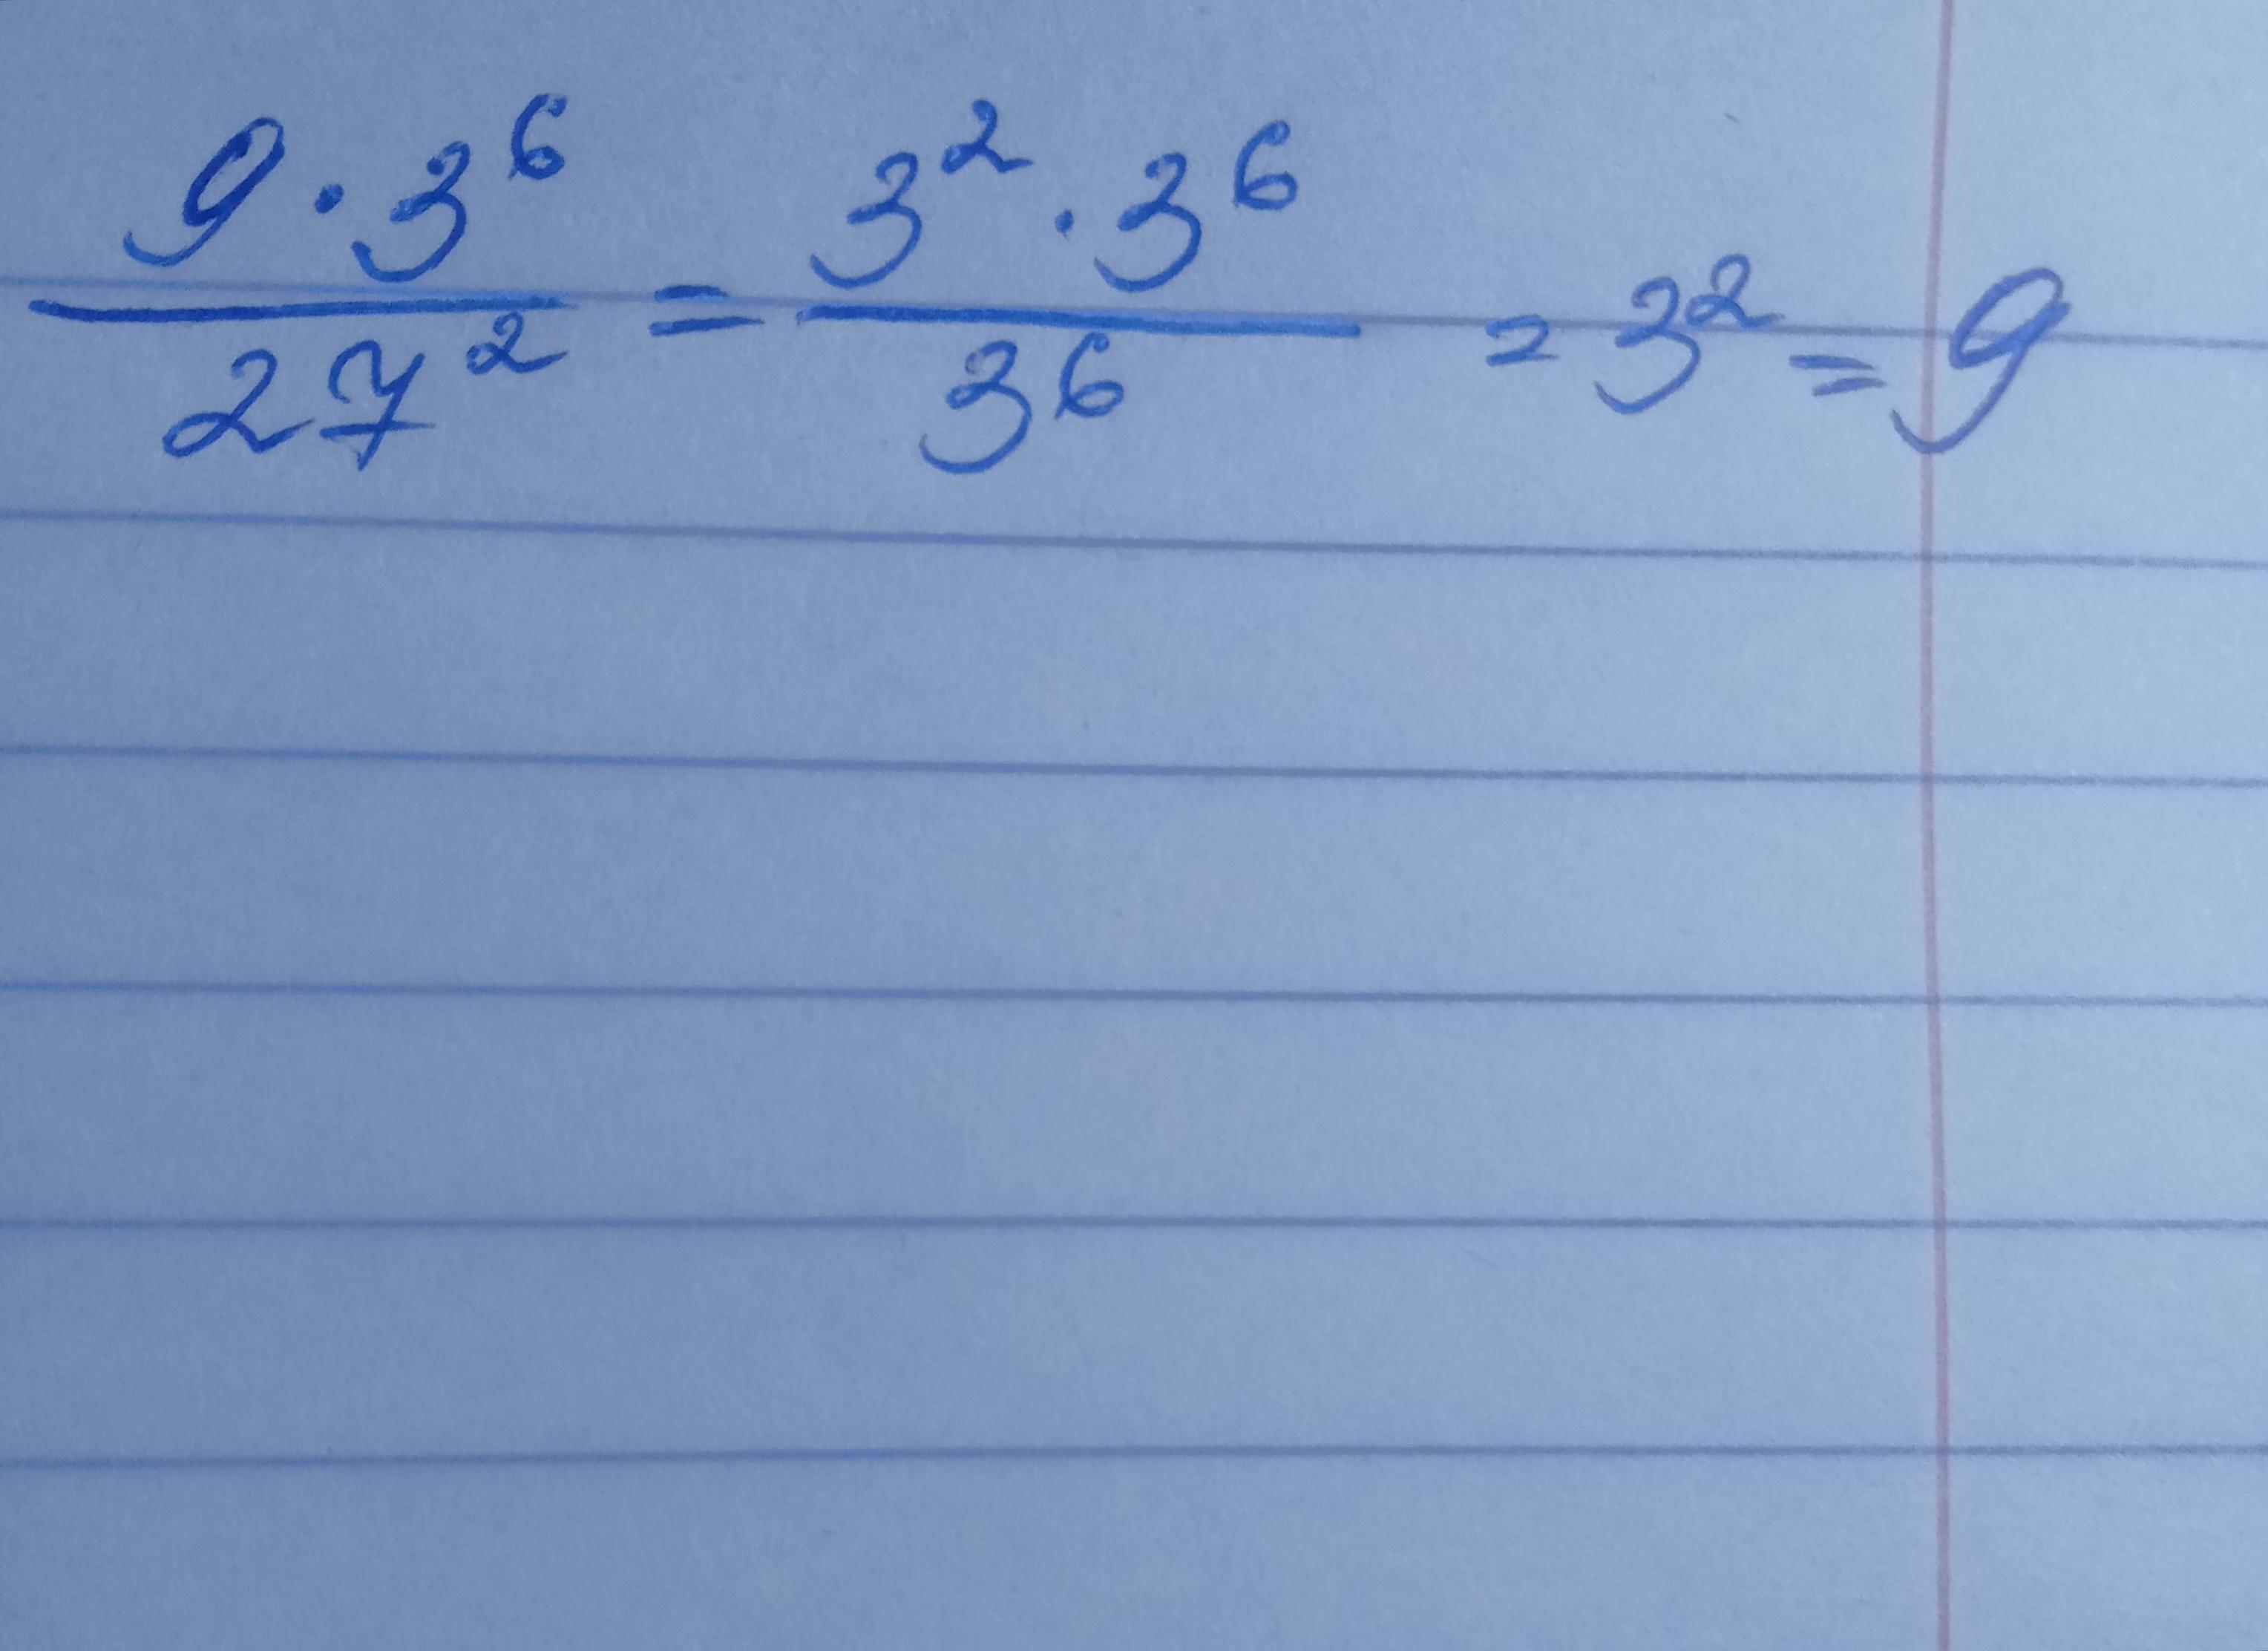 9 · 3⁶ / 27² = 3² · 3⁶ / 3⁶ = 3² = 9